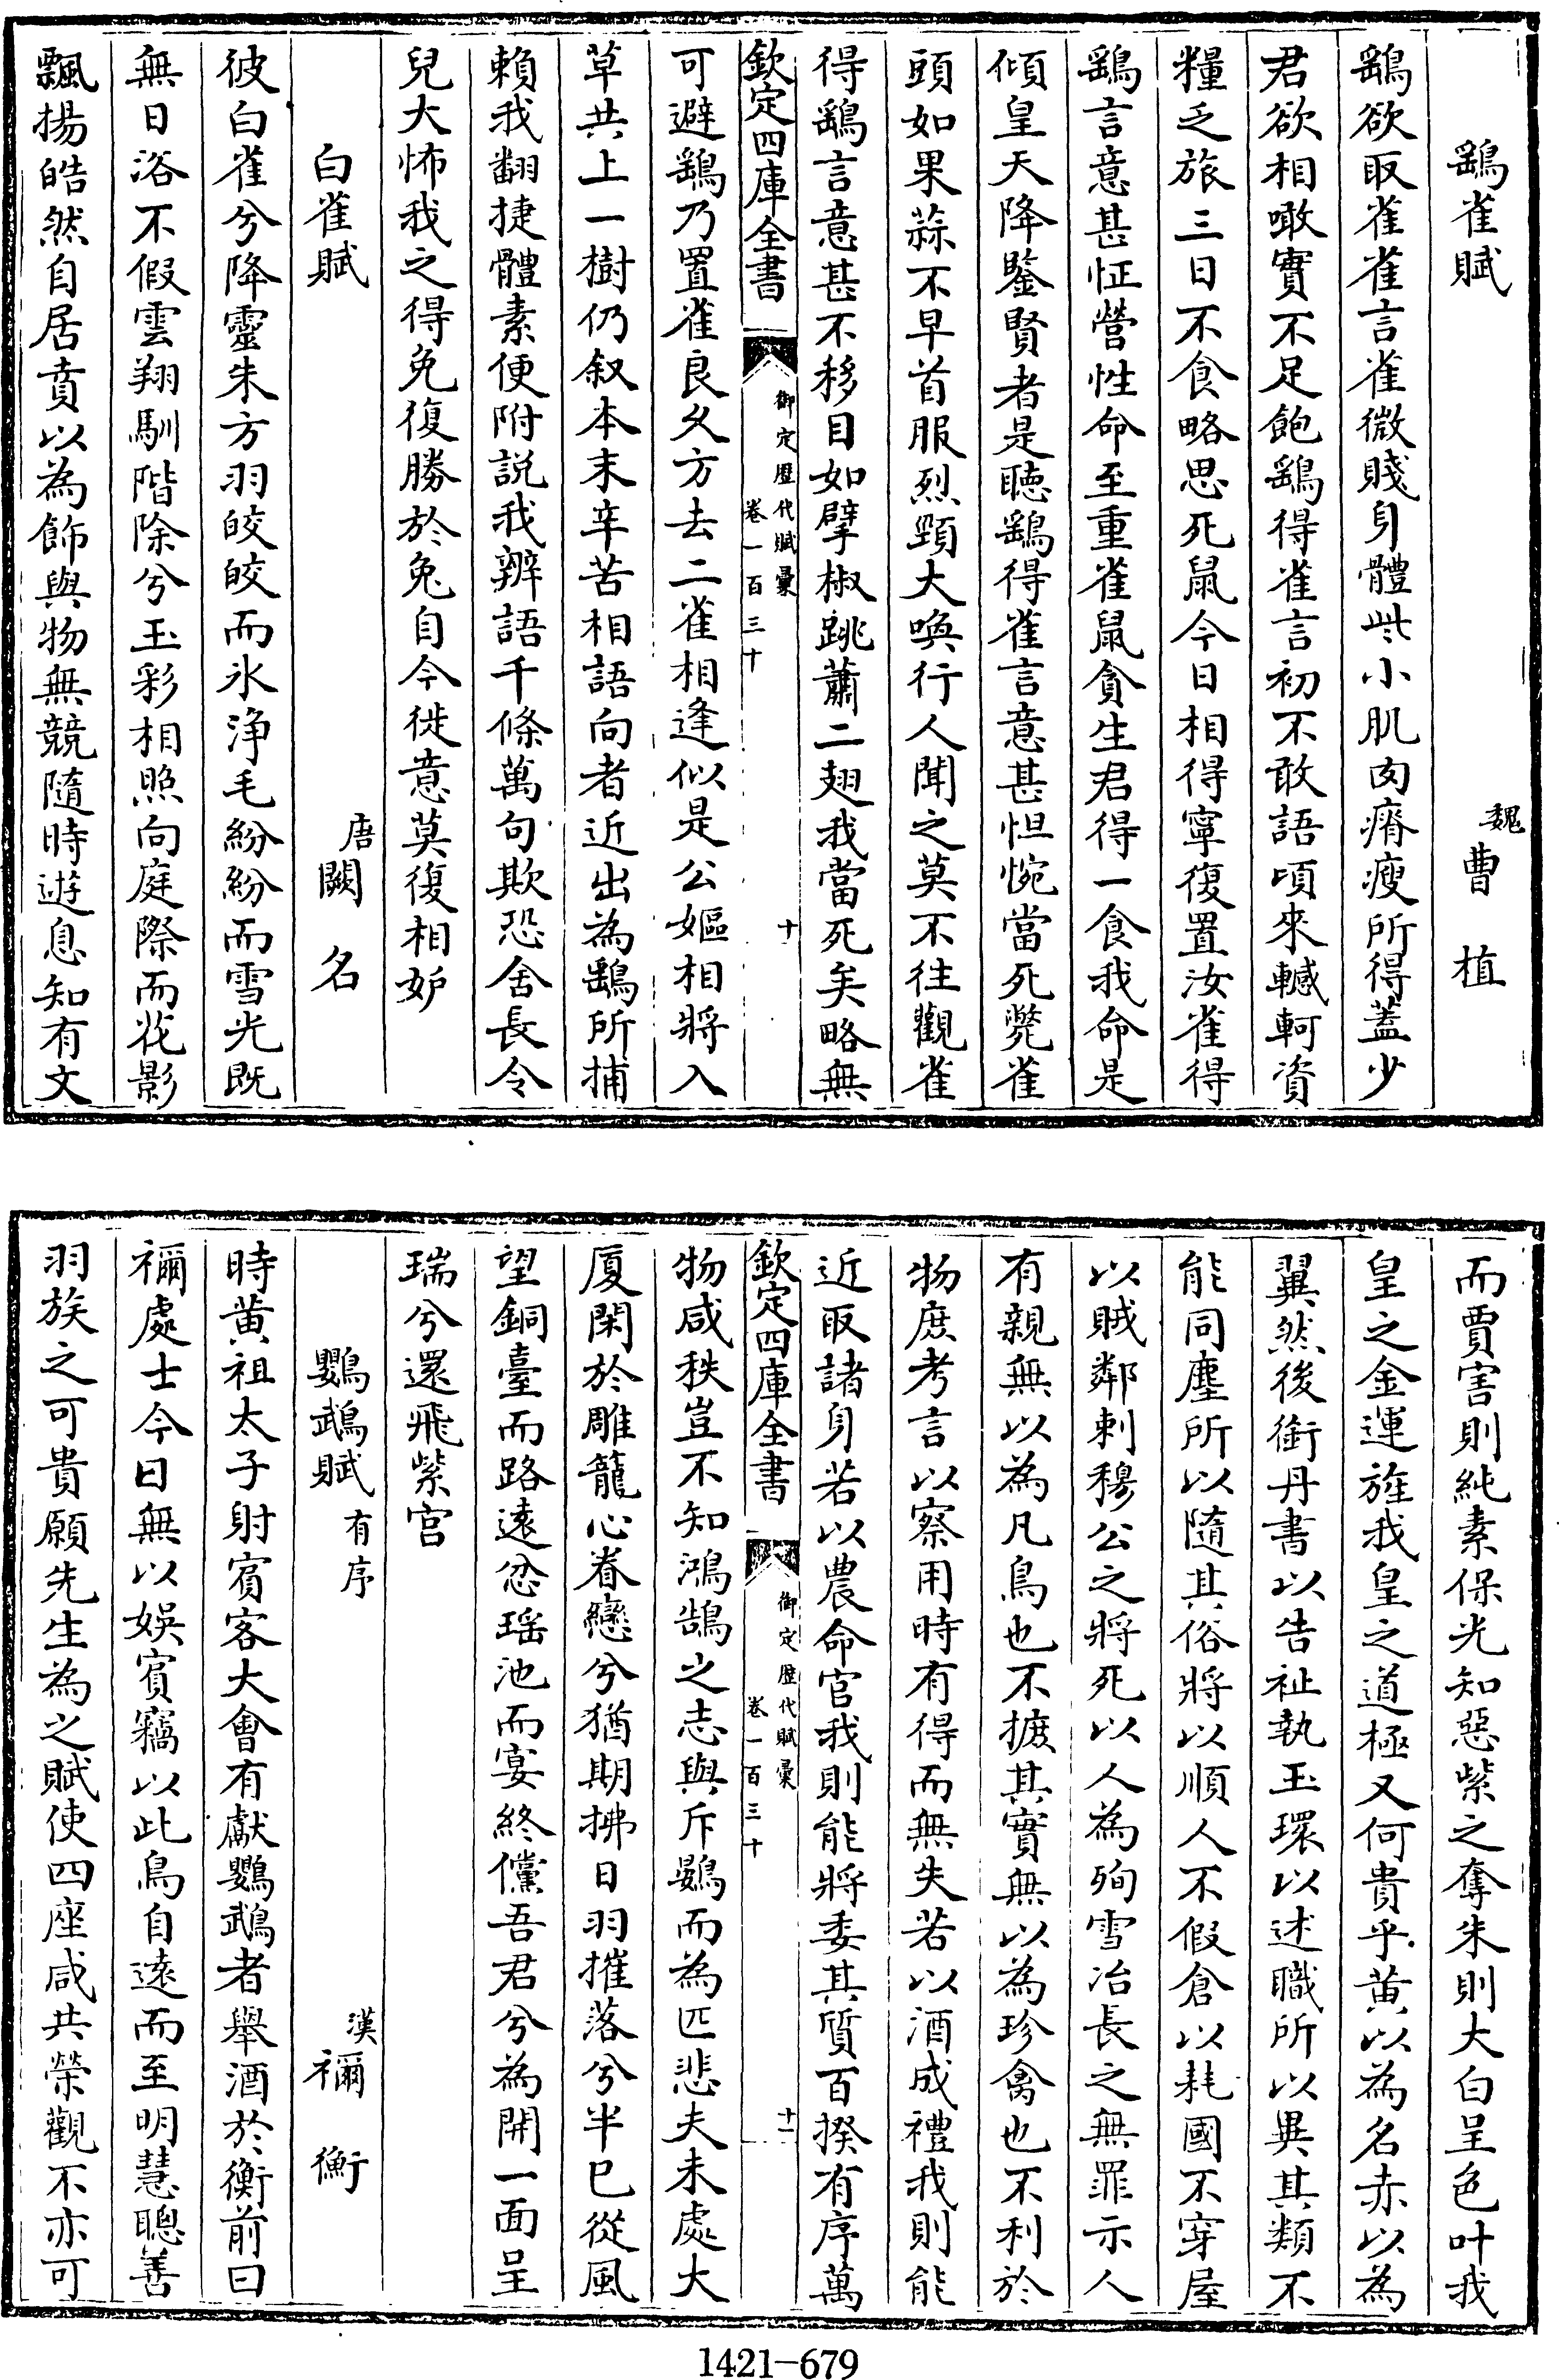 鷂雀賦
魏曹植
鷂欲取雀雀言雀微賤身體些小肌肉瘠瘦所得蓋少
君欲相噉實不足飽鷂得雀言初不敢語頃來轗軻資
糧乏旅三日不食略思死鼠今日相得寧復置汝雀得
鷂言意甚怔營性命至重雀鼠貪生君得一食我命是
傾皇天降鑒賢者是聴鷂得雀言意甚怛惋當死斃雀
頭如果蒜不早首服烈頸大喚行人聞之莫不往觀雀
得鷂言意甚不移目如擘椒跳蕭二翅我當死矣略無
欽定四庫全書
御定歴代賦彙
卷一百三十
十
可避鷂乃置雀良久方去二雀相逢似是公嫗相將入
草共上一樹仍叙本末辛苦相語向者近出為鷂所捕
賴我翻捷體素便附説我辨語千條萬句欺恐舍長令
兒大怖我之得免復勝於兔自今徙意莫復相妒
白雀賦
唐闕名
彼白雀兮降靈朱方羽皎皎而氷浄毛紛紛而雪光既
無日浴不假雲翔馴階除兮玉彩相照向庭際而花影
飄揚皓然自居賁以為飾與物無競隨時遊息知有文
而賈害則純素保光知惡紫之奪朱則大白呈色叶我
皇之金運旌我皇之道極又何貴乎黄以為名赤以為
翼然後銜丹書以告祉執玉環以述職所以異其類不
能同塵所以隨其俗將以順人不假倉以耗國不穿屋
以賊鄰刺穆公之將死以人為殉雪冶長之無罪示人
有親無以為凡鳥也不摭其實無以為珍禽也不利於
物庶考言以察用時有得而無失若以酒成禮我則能
近取諸身若以農命官我則能將委其質百揆有序萬
欽定四庫全書
御定歴代賦彙
卷一百三十
十一
物咸秩豈不知鴻鵠之志與斥鷃而為匹悲夫未處大
厦閑於雕籠心眷戀兮猶期拂日羽摧落兮半已從風
望銅臺而路遠忿瑶池而宴終儻吾君兮為開一面呈
瑞兮還飛紫宫
鸚鵡賦有序
漢禰衡
時黄祖太子射賓客大會有獻鸚鵡者舉酒於衡前曰
禰處士今日無以娛賓竊以此鳥自遠而至明慧聰善
羽族之可貴願先生為之賦使四座咸共榮觀不亦可
1421-679